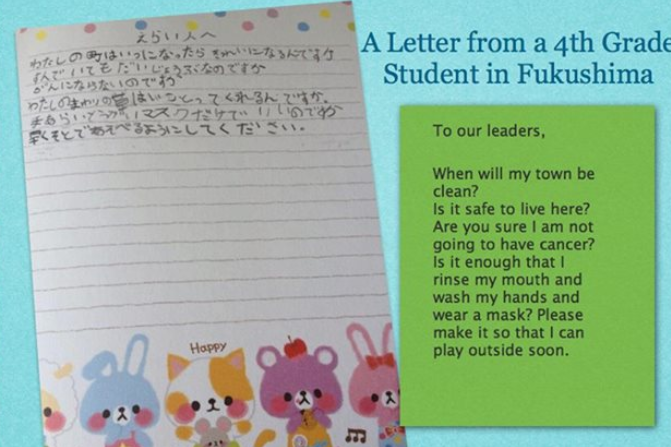 えらい人へ
わたしの町はいつになったらきれいになるんですか
すんでいてもだいじょうぶなのですか
がんにならないのですか
わたしのまわりの とってくれるんですか。
マスクだけでいいのですか
早くそとであそべるようにしてください。
Happy
A Letter from a 4th Grade
Student in Fukushima
To our leaders,
When will my town be
clean?
Is it safe to live here?
Are you sure I am not
going to have cancer?
Is it enough that I
rinse my mouth and
wash my hands and
wear a mask? Please
make it so that I can
play outside soon.